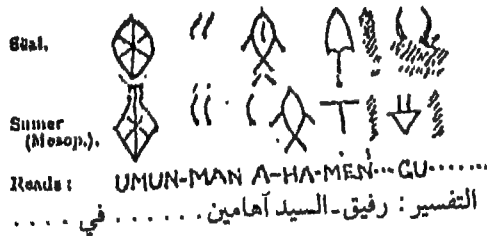 Seal.
Sumer
(Mesop.).
Reads: UMUN-MAN A-HA-MEN...GU.......
التفسير : رفيق-السيد آهامين. . . . . . . في . . . .